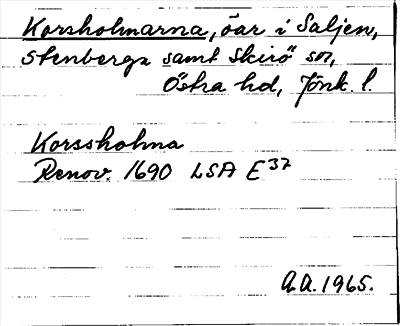 Korsholmarna, öar i Saljen,
Stenberga samt Skirö snr,
Östra hd, Jönk. l.
Korssholma
Renov. 1690 LSA E37
A.A. 1965.